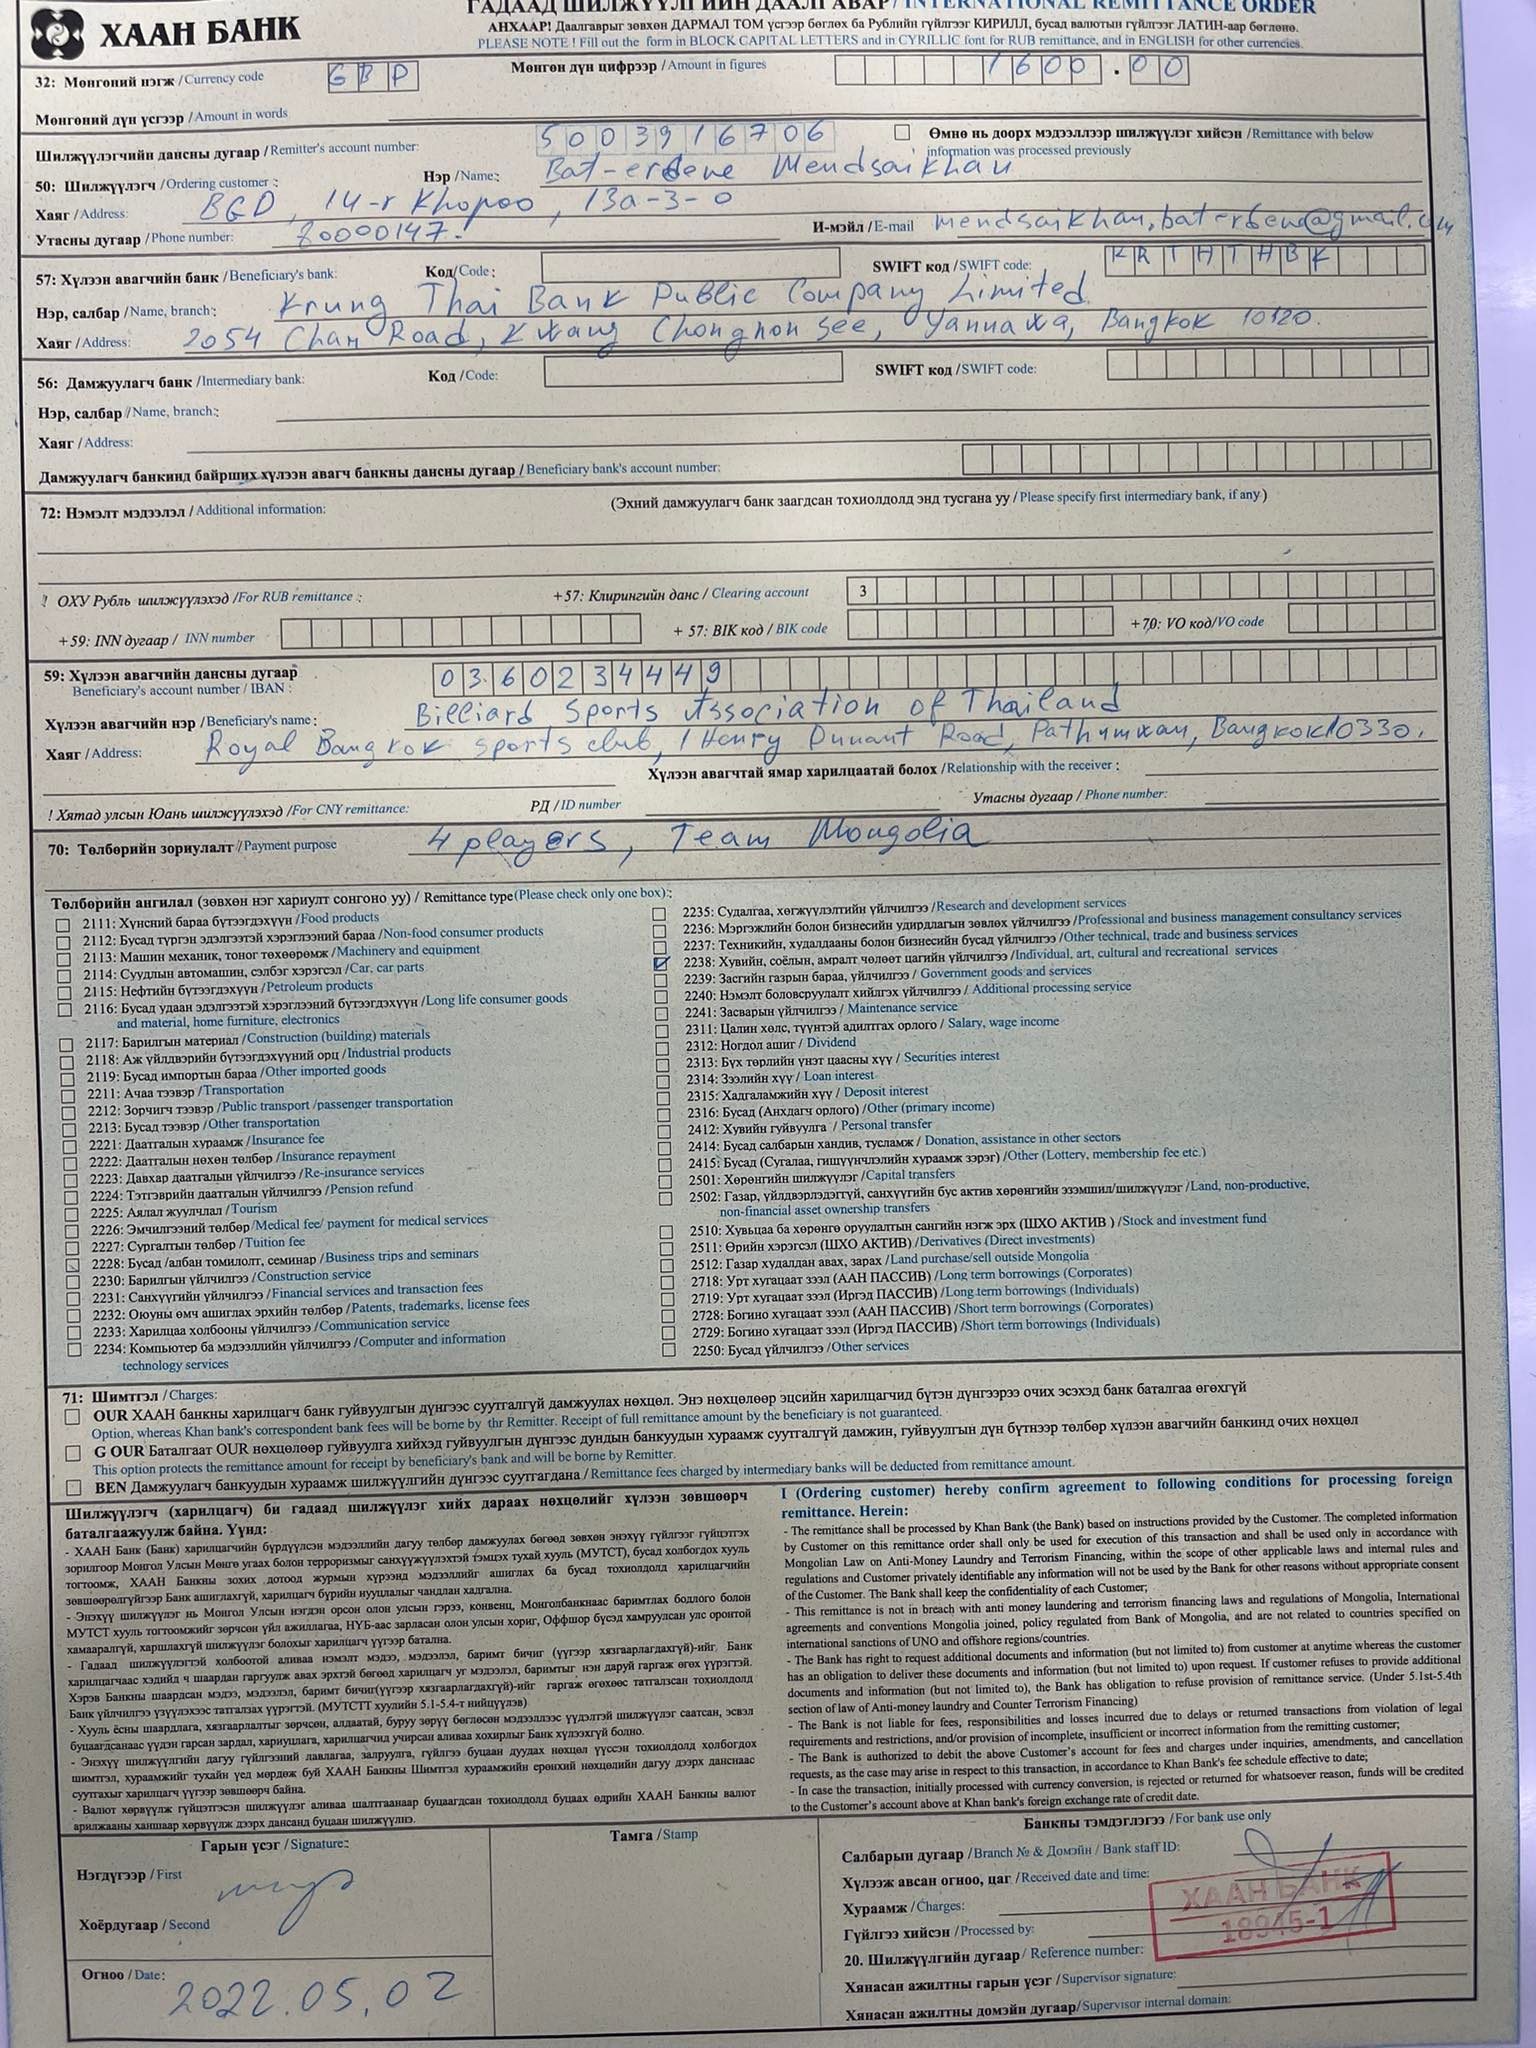 ХААН БАНК
ГАДААД ШИЛЖҮҮЛГИЙН ДААЛГАВАР / INTERNATIONAL REMITTANCE ORDER
АНХААР! Даалгаврыг зөвхөн ДАРМАЛ ТОМ үсгээр бөглөх ба Рублийн гүйлгээг КИРИЛЛ, бусад валютын гүйлгээг ЛАТИН-аар бөглөнө.
PLEASE NOTE ! Fill out the form in BLOCK CAPITAL LETTERS and in CYRILLIC font for RUB remittance, and in ENGLISH for other currencies.
32: Мөнгөний нэгж /Currency code GBP Мөнгөн дүн цифрээр /Amount in figures 1600.00
Мөнгөний дүн үсгээр /Amount in words
Шилжүүлэгчийн дансны дугаар /Remitter's account number: 5003916706 Өмнө нь доорх мэдээллээр шилжүүлэг хийсэн /Remittance with below information was processed previously
50: Шилжүүлэгч /Ordering customer : Нэр /Name: Bat-erdene Mendsaikhan
Хаяг /Address: BGD, 14-r Khopoo, 13a-3-0
Утасны дугаар /Phone number: 80000147. И-мэйл /E-mail mendsaikhan.bat-rdene@gmail.com
57: Хүлээн авагчийн банк /Beneficiary's bank: Код/Code : SWIFT код /SWIFT code: KRTHTHBK
Нэр, салбар /Name, branch: Krung Thai Bank Public Company Limited
Хаяг /Address: 2054 Chan Road, Kwang Chongnonsee, Yannawa, Bangkok 10120.
56: Дамжуулагч банк /Intermediary bank: Код /Code: SWIFT код /SWIFT code:
Нэр, салбар /Name, branch:
Хаяг /Address:
Дамжуулагч банкинд байрших хүлээн авагч банкны дансны дугаар /Beneficiary bank's account number:
72: Нэмэлт мэдээлэл /Additional information: (Эхний дамжуулагч банк заагдсан тохиолдолд энд тусгана уу /Please specify first intermediary bank, if any)
! ОХУ Рубль шилжүүлэхэд /For RUB remittance : +57: Клирингийн данс / Clearing account 3
+59: INN дугаар / INN number + 57: BIK код / BIK code +70: VO код/VO code
59: Хүлээн авагчийн дансны дугаар 0360234449
Beneficiary's account number / IBAN :
Хүлээн авагчийн нэр /Beneficiary's name : Billiard Sports Association of Thailand
Хаяг /Address: Royal Bangkok sports club, 1 Henry Dunant Road, Pathumwan, Bangkok 10330.
Хүлээн авагчтай ямар харилцаатай болох /Relationship with the receiver :
! Хятад улсын Юань шилжүүлэхэд /For CNY remittance: РД / ID number Утасны дугаар / Phone number:
70: Төлбөрийн зориулалт /Payment purpose 4 players, Team Mongolia
Төлбөрийн ангилал (зөвхөн нэг хариулт сонгоно уу) / Remittance type(Please check only one box):
2111: Хүнсний бараа бүтээгдэхүүн /Food products
2112: Бусад түргэн эдэлгээтэй хэрэглээний бараа /Non-food consumer products
2113: Машин механик, тоног төхөөрөмж /Machinery and equipment
2114: Суудлын автомашин, сэлбэг хэрэгсэл /Car, car parts
2115: Нефтийн бүтээгдэхүүн /Petroleum products
2116: Бусад удаан эдэлгээтэй хэрэглээний бүтээгдэхүүн /Long life consumer goods
and material, home furniture, electronics
2117: Барилгын материал /Construction (building) materials
2118: Аж үйлдвэрийн бүтээгдэхүүний орц /Industrial products
2119: Бусад импортын бараа /Other imported goods
2211: Ачаа тээвэр /Transportation
2212: Зорчигч тээвэр /Public transport /passenger transportation
2213: Бусад тээвэр /Other transportation
2221: Даатгалын хураамж /Insurance fee
2222: Даатгалын нөхөн төлбөр /Insurance repayment
2223: Давхар даатгалын үйлчилгээ /Re-insurance services
2224: Тэтгэврийн даатгалын үйлчилгээ /Pension refund
2225: Аялал жуулчлал /Tourism
2226: Эмчилгээний төлбөр/Medical fee/ payment for medical services
2227: Сургалтын төлбөр /Tuition fee
2228: Бусад /албан томилолт, семинар /Business trips and seminars
2230: Барилгын үйлчилгээ /Construction service
2231: Санхүүгийн үйлчилгээ /Financial services and transaction fees
2232: Оюуны өмч ашиглах эрхийн төлбөр /Patents, trademarks, license fees
2233: Харилцаа холбооны үйлчилгээ /Communication service
2234: Компьютер ба мэдээллийн үйлчилгээ /Computer and information
technology services
2235: Судалгаа, хөгжүүлэлтийн үйлчилгээ /Research and development services
2236: Мэргэжлийн болон бизнесийн удирдлагын зөвлөх үйлчилгээ /Professional and business management consultancy services
2237: Техникийн, худалдааны болон бизнесийн бусад үйлчилгээ /Other technical, trade and business services
2238: Хувийн, соёлын, амралт чөлөөт цагийн үйлчилгээ /Individual, art, cultural and recreational services
2239: Засгийн газрын бараа, үйлчилгээ / Government goods and services
2240: Нэмэлт боловсруулалт хийлгэх үйлчилгээ / Additional processing service
2241: Засварын үйлчилгээ / Maintenance service
2311: Цалин хөлс, түүнтэй адилтгах орлого / Salary, wage income
2312: Ногдол ашиг / Dividend
2313: Бүх төрлийн үнэт цаасны хүү / Securities interest
2314: Зээлийн хүү / Loan interest
2315: Хадгаламжийн хүү / Deposit interest
2316: Бусад (Анхдагч орлого) /Other (primary income)
2412: Хувийн гуйвуулга / Personal transfer
2414: Бусад салбарын хандив, тусламж / Donation, assistance in other sectors
2415: Бусад (Сугалаа, гишүүнчлэлийн хураамж зэрэг) /Other (Lottery, membership fee etc.)
2501: Хөрөнгийн шилжүүлэг /Capital transfers
2502: Газар, үйлдвэрлэдэггүй, санхүүгийн бус актив хөрөнгийн эзэмшил/шилжүүлэг /Land, non-productive,
non-financial asset ownership transfers
2510: Хувьцаа ба хөрөнгө оруулалтын сангийн нэгж эрх (ШХО АКТИВ ) /Stock and investment fund
2511: Өрийн хэрэгсэл (ШХО АКТИВ) /Derivatives (Direct investments)
2512: Газар худалдан авах, зарах /Land purchase/sell outside Mongolia
2718: Урт хугацаат зээл (ААН ПАССИВ) /Long term borrowings (Corporates)
2719: Урт хугацаат зээл (Иргэд ПАССИВ) /Long term borrowings (Individuals)
2728: Богино хугацаат зээл (ААН ПАССИВ) /Short term borrowings (Corporates)
2729: Богино хугацаат зээл (Иргэд ПАССИВ) /Short term borrowings (Individuals)
2250: Бусад үйлчилгээ /Other services
71: Шимтгэл /Charges:
OUR ХААН банкны харилцагч банк гуйвуулгын дүнгээс суутгалгүй дамжуулах нөхцөл. Энэ нөхцөлөөр эцсийн харилцагчид бүтэн дүнгээрээ очих эсэхэд банк баталгаа өгөхгүй
Option, whereas Khan bank's correspondent bank fees will be borne by thr Remitter. Receipt of full remittance amount by the beneficiary is not guaranteed.
G OUR Баталгаат OUR нөхцөлөөр гуйвуулга хийхэд гуйвуулгын дүнгээс дундын банкуудын хураамж суутгалгүй дамжин, гуйвуулгын дүн бүтнээр төлбөр хүлээн авагчийн банкинд очих нөхцөл
This option protects the remittance amount for receipt by beneficiary's bank and will be borne by Remitter.
BEN Дамжуулагч банкуудын хураамж шилжүүлгийн дүнгээс суутгагдана / Remittance fees charged by intermediary banks will be deducted from remittance amount.
Шилжүүлэгч (харилцагч) би гадаад шилжүүлэг хийх дараах нөхцөлийг хүлээн зөвшөөрч
баталгаажуулж байна. Үүнд:
- ХААН Банк (Банк) харилцагчийн бүрдүүлсэн мэдээллийн дагуу төлбөр дамжуулах бөгөөд зөвхөн энэхүү гүйлгээг гүйцэтгэх
зорилгоор Монгол Улсын Мөнгө угаах болон терроризмыг санхүүжүүлэхтэй тэмцэх тухай хууль (МУТСТ), бусад холбогдох хууль
тогтоомж, ХААН Банкны зохих дотоод журмын хүрээнд мэдээллийг ашиглах ба бусад тохиолдолд харилцагчийн
зөвшөөрөлгүйгээр Банк ашиглахгүй, харилцагч бүрийн нууцлалыг чандлан хадгална.
- Энэхүү шилжүүлэг нь Монгол Улсын нэгдэн орсон олон улсын гэрээ, конвенц, Монголбанкнаас баримтлах бодлого болон
МУТСТ хууль тогтоомжийг зөрчсөн үйл ажиллагаа, НҮБ-аас зарласан олон улсын хориг, Оффшор бүсэд хамруулсан улс оронтой
хамааралгүй, харшлахгүй шилжүүлэг болохыг харилцагч үүгээр батална.
- Гадаад шилжүүлэгтэй холбоотой аливаа нэмэлт мэдээ, мэдээлэл, баримт бичиг (үүгээр хязгаарлагдахгүй)-ийг Банк
харилцагчаас хэдийд ч шаардан гаргуулж авах эрхтэй бөгөөд харилцагч уг мэдээлэл, баримтыг нэн даруй гаргаж өгөх үүрэгтэй.
Хэрэв Банкны шаардсан мэдээ, мэдээлэл, баримт бичиг(үүгээр хязгаарлагдахгүй)-ийг гаргаж өгөхөөс татгалзсан тохиолдолд
Банк үйлчилгээ үзүүлэхээс татгалзах үүрэгтэй. (МУТСТТ хуулийн 5.1-5.4-т нийцүүлэв)
- Хууль ёсны шаардлага, хязгаарлалтыг зөрчсөн, алдаатай, буруу зөрүү бөглөсөн мэдээллээс үүдэлтэй шилжүүлэг саатсан, эсвэл
буцаагдсанаас үүдэн гарсан зардал, хариуцлага, харилцагчид учирсан аливаа хохирлыг Банк хүлээхгүй болно.
- Энэхүү шилжүүлгийн дагуу гүйлгээний лавлагаа, залруулга, гүйлгээ буцаан дуудах нөхцөл үүссэн тохиолдолд холбогдох
шимтгэл, хураамжийг тухайн үед мөрдөж буй ХААН Банкны Шимтгэл хураамжийн ерөнхий нөхцөлийн дагуу дээрх данснаас
суутгахыг харилцагч үүгээр зөвшөөрч байна.
- Валют хөрвүүлж гүйцэтгэсэн шилжүүлэг аливаа шалтгаанаар буцаагдсан тохиолдолд буцаах өдрийн ХААН Банкны валют
арилжааны ханшаар хөрвүүлж дээрх дансанд буцаан шилжүүлнэ.
I (Ordering customer) hereby confirm agreement to following conditions for processing foreign
remittance. Herein:
- The remittance shall be processed by Khan Bank (the Bank) based on instructions provided by the Customer. The completed information
by Customer on this remittance order shall only be used for execution of this transaction and shall be used only in accordance with
Mongolian Law on Anti-Money Laundry and Terrorism Financing, within the scope of other applicable laws and internal rules and
regulations and Customer privately identifiable any information will not be used by the Bank for other reasons without appropriate consent
of the Customer. The Bank shall keep the confidentiality of each Customer;
- This remittance is not in breach with anti money laundering and terrorism financing laws and regulations of Mongolia, International
agreements and conventions Mongolia joined, policy regulated from Bank of Mongolia, and are not related to countries specified on
international sanctions of UNO and offshore regions/countries.
- The Bank has right to request additional documents and information (but not limited to) from customer at anytime whereas the customer
has an obligation to deliver these documents and information (but not limited to) upon request. If customer refuses to provide additional
documents and information (but not limited to), the Bank has obligation to refuse provision of remittance service. (Under 5.1st-5.4th
section of law of Anti-money laundry and Counter Terrorism Financing)
- The Bank is not liable for fees, responsibilities and losses incurred due to delays or returned transactions from violation of legal
requirements and restrictions, and/or provision of incomplete, insufficient or incorrect information from the remitting customer;
- The Bank is authorized to debit the above Customer's account for fees and charges under inquiries, amendments, and cancellation
requests, as the case may arise in respect to this transaction, in accordance to Khan Bank's fee schedule effective to date;
- In case the transaction, initially processed with currency conversion, is rejected or returned for whatsoever reason, funds will be credited
to the Customer's account above at Khan bank's foreign exchange rate of credit date.
Гарын үсэг /Signature:
Нэгдүгээр /First
Хоёрдугаар /Second
Огноо /Date: 2022.05.02
Тамга /Stamp
Банкны тэмдэглэгээ /For bank use only
Салбарын дугаар /Branch № & Домэйн / Bank staff ID:
Хүлээж авсан огноо, цаг /Received date and time:
Хураамж /Charges:
Гүйлгээ хийсэн /Processed by:
20. Шилжүүлгийн дугаар/ Reference number:
Хянасан ажилтны гарын үсэг /Supervisor signature:
Хянасан ажилтны домэйн дугаар/Supervisor internal domain:
ХААН БАНК
18945-1